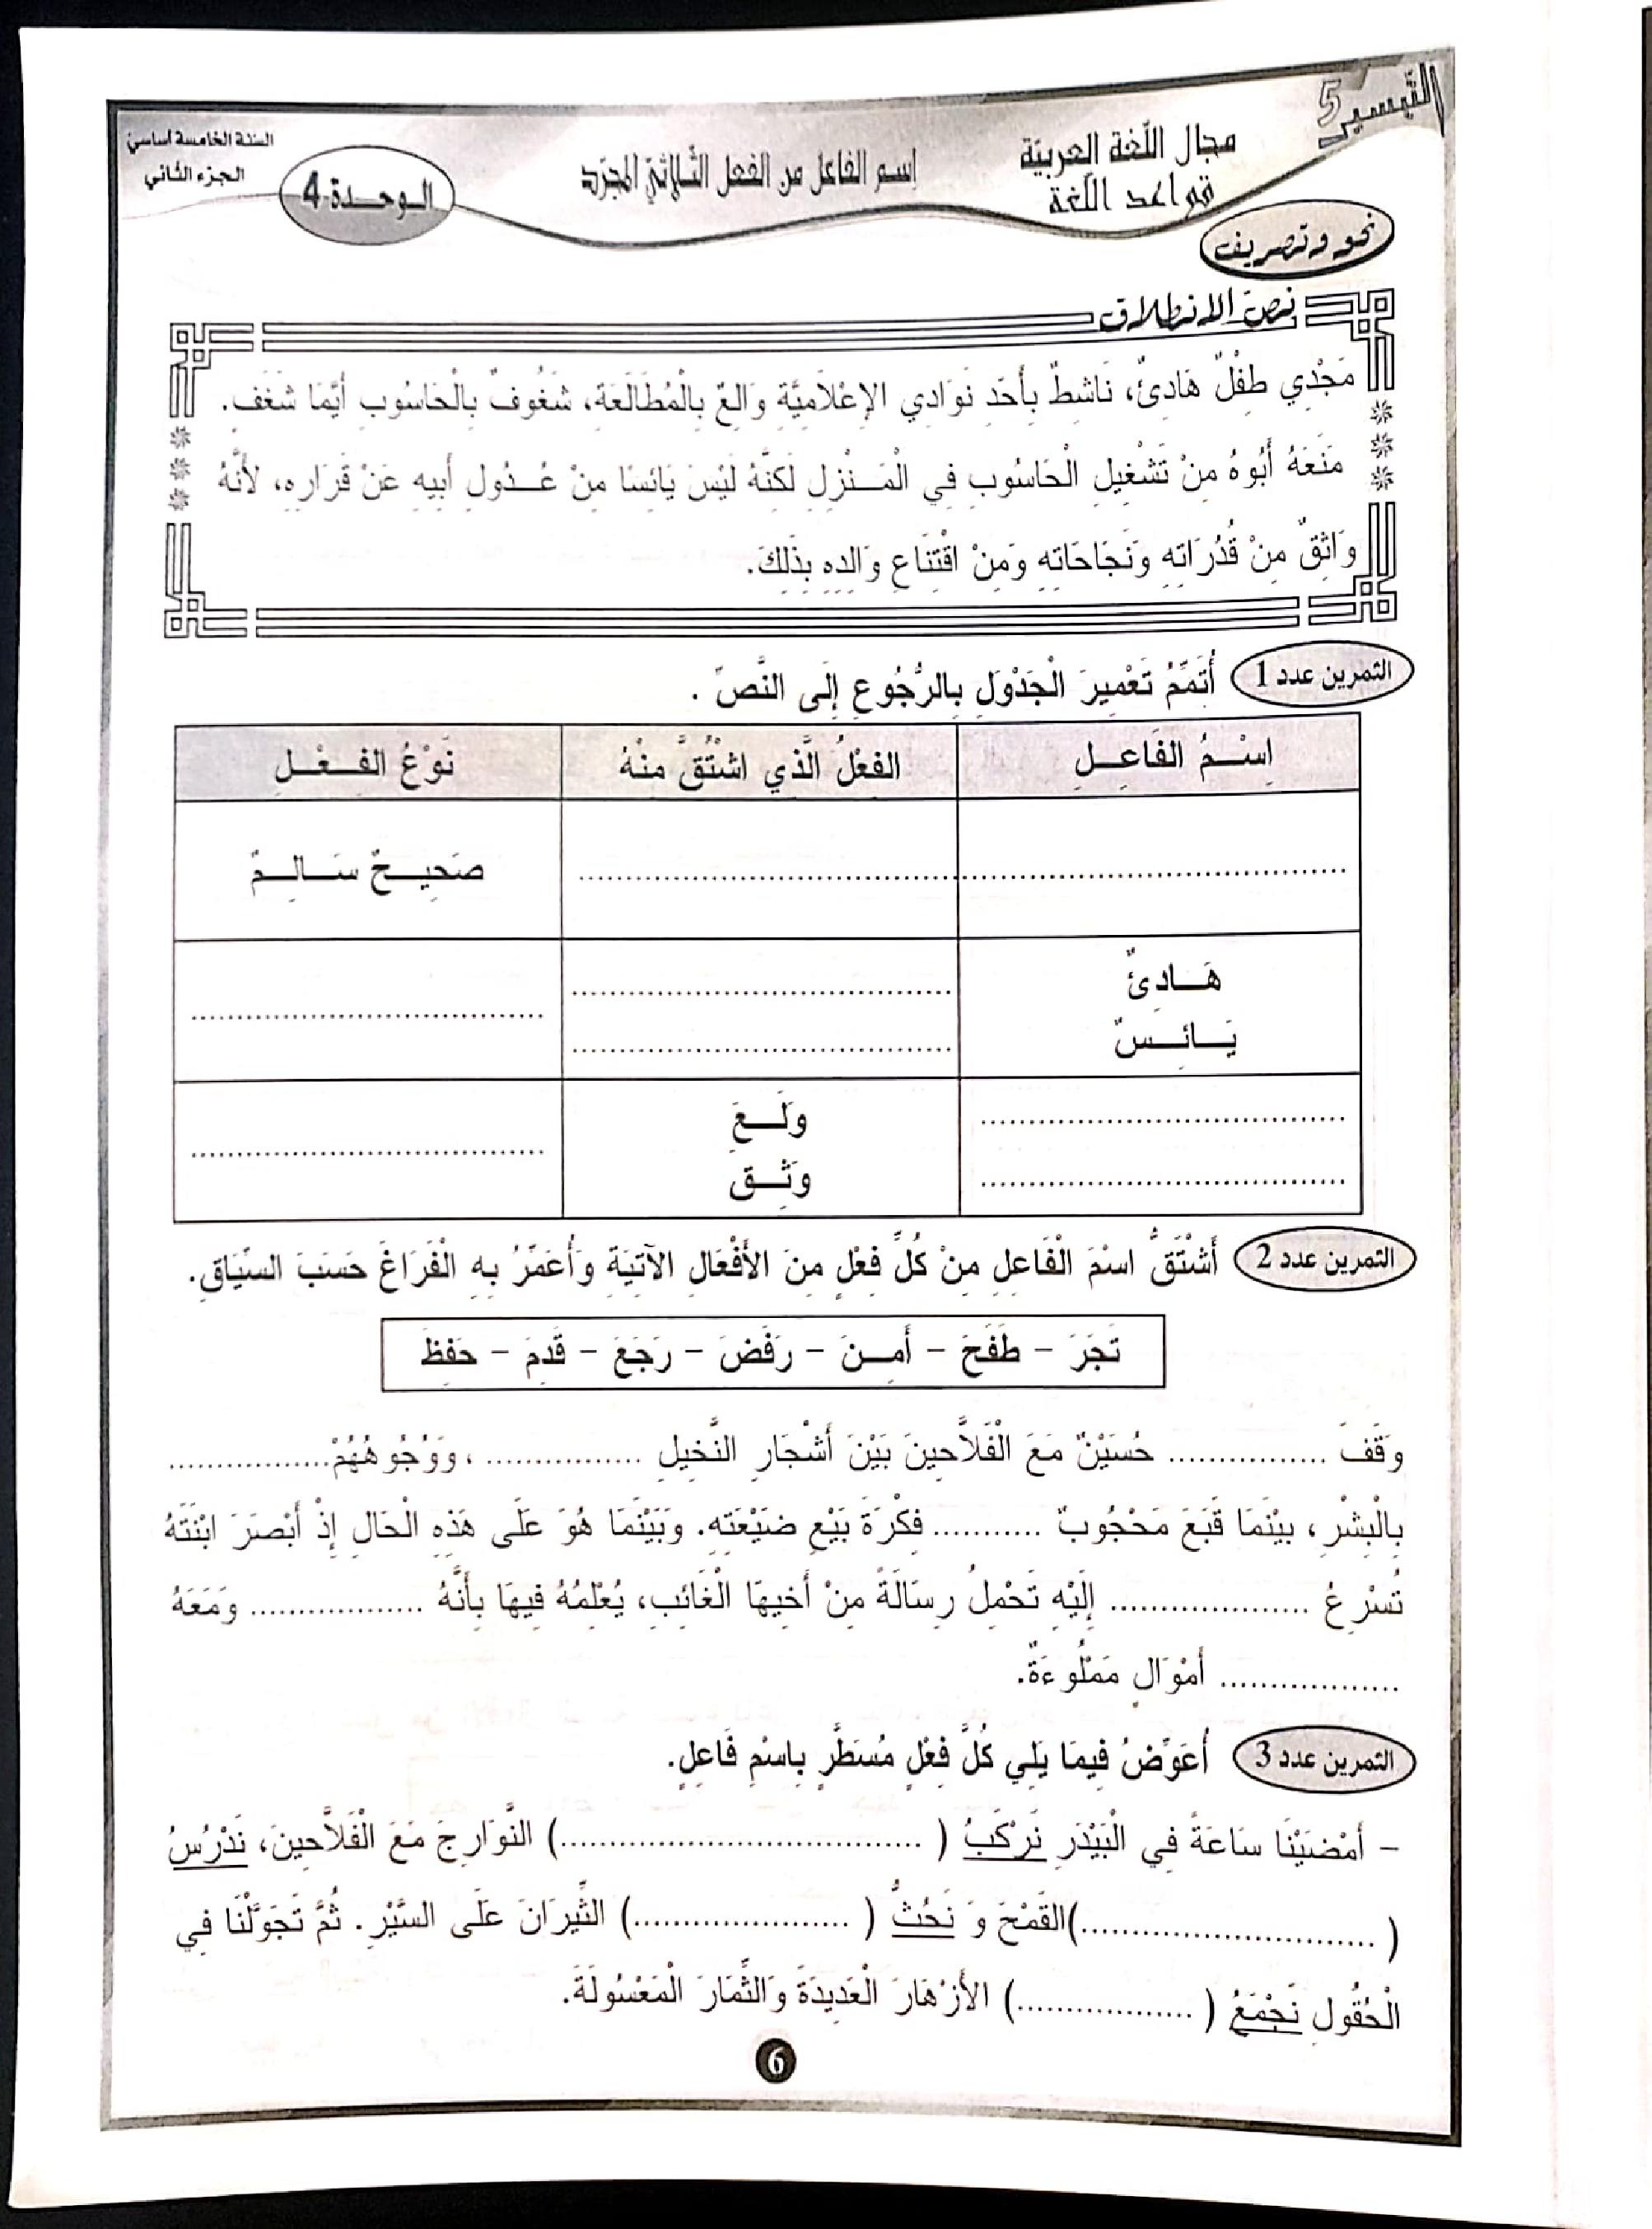 التيسير 5
مجال اللّغة العربيّة
قواعد اللّغة
إسم الفاعل من الفعل الثّلاثيّ المجرّد
السنة الخامسة أساسي
الجزء الثاني
الـوحـدة-4
نحو وتصريف
نصّ الانطلاق
مَجْدِي طِفْلٌ هَادِئٌ، نَاشِطٌ بِأَحَدِ نَوَادِي الإِعْلَامِيَّةِ وَالِعٌ بِالْمُطَالَعَةِ، شَغُوفٌ بِالْحَاسُوبِ أَيَّمَا شَغَفٍ.
مَنَعَهُ أَبُوهُ مِنْ تَشْغِيلِ الْحَاسُوبِ فِي الْمَنْزِلِ لَكِنَّهُ لَيْسَ يَائِسًا مِنْ عُدُولِ أَبِيهِ عَنْ قَرَارِهِ، لأَنَّهُ
وَاثِقٌ مِنْ قُدُرَاتِهِ وَنَجَاحَاتِهِ وَمِنْ اقْتِنَاعِ وَالِدِهِ بِذَلِكَ.
التمرين عدد 1 أُتَمِّمُ تَعْمِيرَ الْجَدْوَلِ بِالرُّجُوعِ إِلَى النَّصّ .
اِسْـمُ الفَاعِـلِ الفِعْلُ الَّذِي اشْتُقَّ مِنْهُ نَوْعُ الفِـعْـلِ
.......................... .......................... صَحِيـحٌ سَـالِـمٌ
هَـادِئٌ ..........................
..........................
يَـائِـسٌ ..........................
.......................... وَلَـعَ
..........................
.......................... وَثِـقَ
التمرين عدد 2 أَشْتَقُّ اسْمَ الْفَاعِلِ مِنْ كُلِّ فِعْلٍ مِنَ الأَفْعَالِ الآتِيَةِ وَأُعَمِّرُ بِهِ الْفَرَاغَ حَسَبَ السِّيَاقِ.
تَجَرَ - طَفَحَ - أَمِـنَ - رَفَضَ - رَجَعَ - قَدِمَ - حَفِظَ
وَقَفَ ................ حُسَيْنٌ مَعَ الْفَلاَّحِينَ بَيْنَ أَشْجَارِ النَّخِيلِ ................ ، وَوُجُوهُهُمْ................
بِالْبِشْرِ، بَيْنَمَا قَبَعَ مَحْجُوبٌ ........... فِكْرَةَ بَيْعِ ضَيْعَتِهِ. وَبَيْنَمَا هُوَ عَلَى هَذِهِ الْحَالِ إِذْ أَبْصَرَ ابْنَتَهُ
تُسْرِعُ .................... إِلَيْهِ تَحْمِلُ رِسَالَةً مِنْ أَخِيهَا الْغَائِبِ، يُعْلِمُهُ فِيهَا بِأَنَّهُ .................. وَمَعَهُ
.................. أَمْوَالٍ مَمْلُوءَةٌ.
التمرين عدد 3 أُعَوِّضُ فِيمَا يَلِي كُلَّ فِعْلٍ مُسَطَّرٍ بِاسْمِ فَاعِلٍ.
- أَمْضَيْنَا سَاعَةً فِي الْبَيْدَرِ نَرْكَبُ ( .....................................) النَّوَارِجَ مَعَ الْفَلاَّحِينَ، نَدْرُسُ
( ..............................)القَمْحَ وَ نَحُثُّ ( ......................) الثِّيرَانَ عَلَى السَّيْرِ. ثُمَّ تَجَوَّلْنَا فِي
الْحُقُولِ نَجْمَعُ ( ..................) الأَزْهَارَ الْعَدِيدَةَ وَالثِّمَارَ الْمَعْسُولَةَ.
6